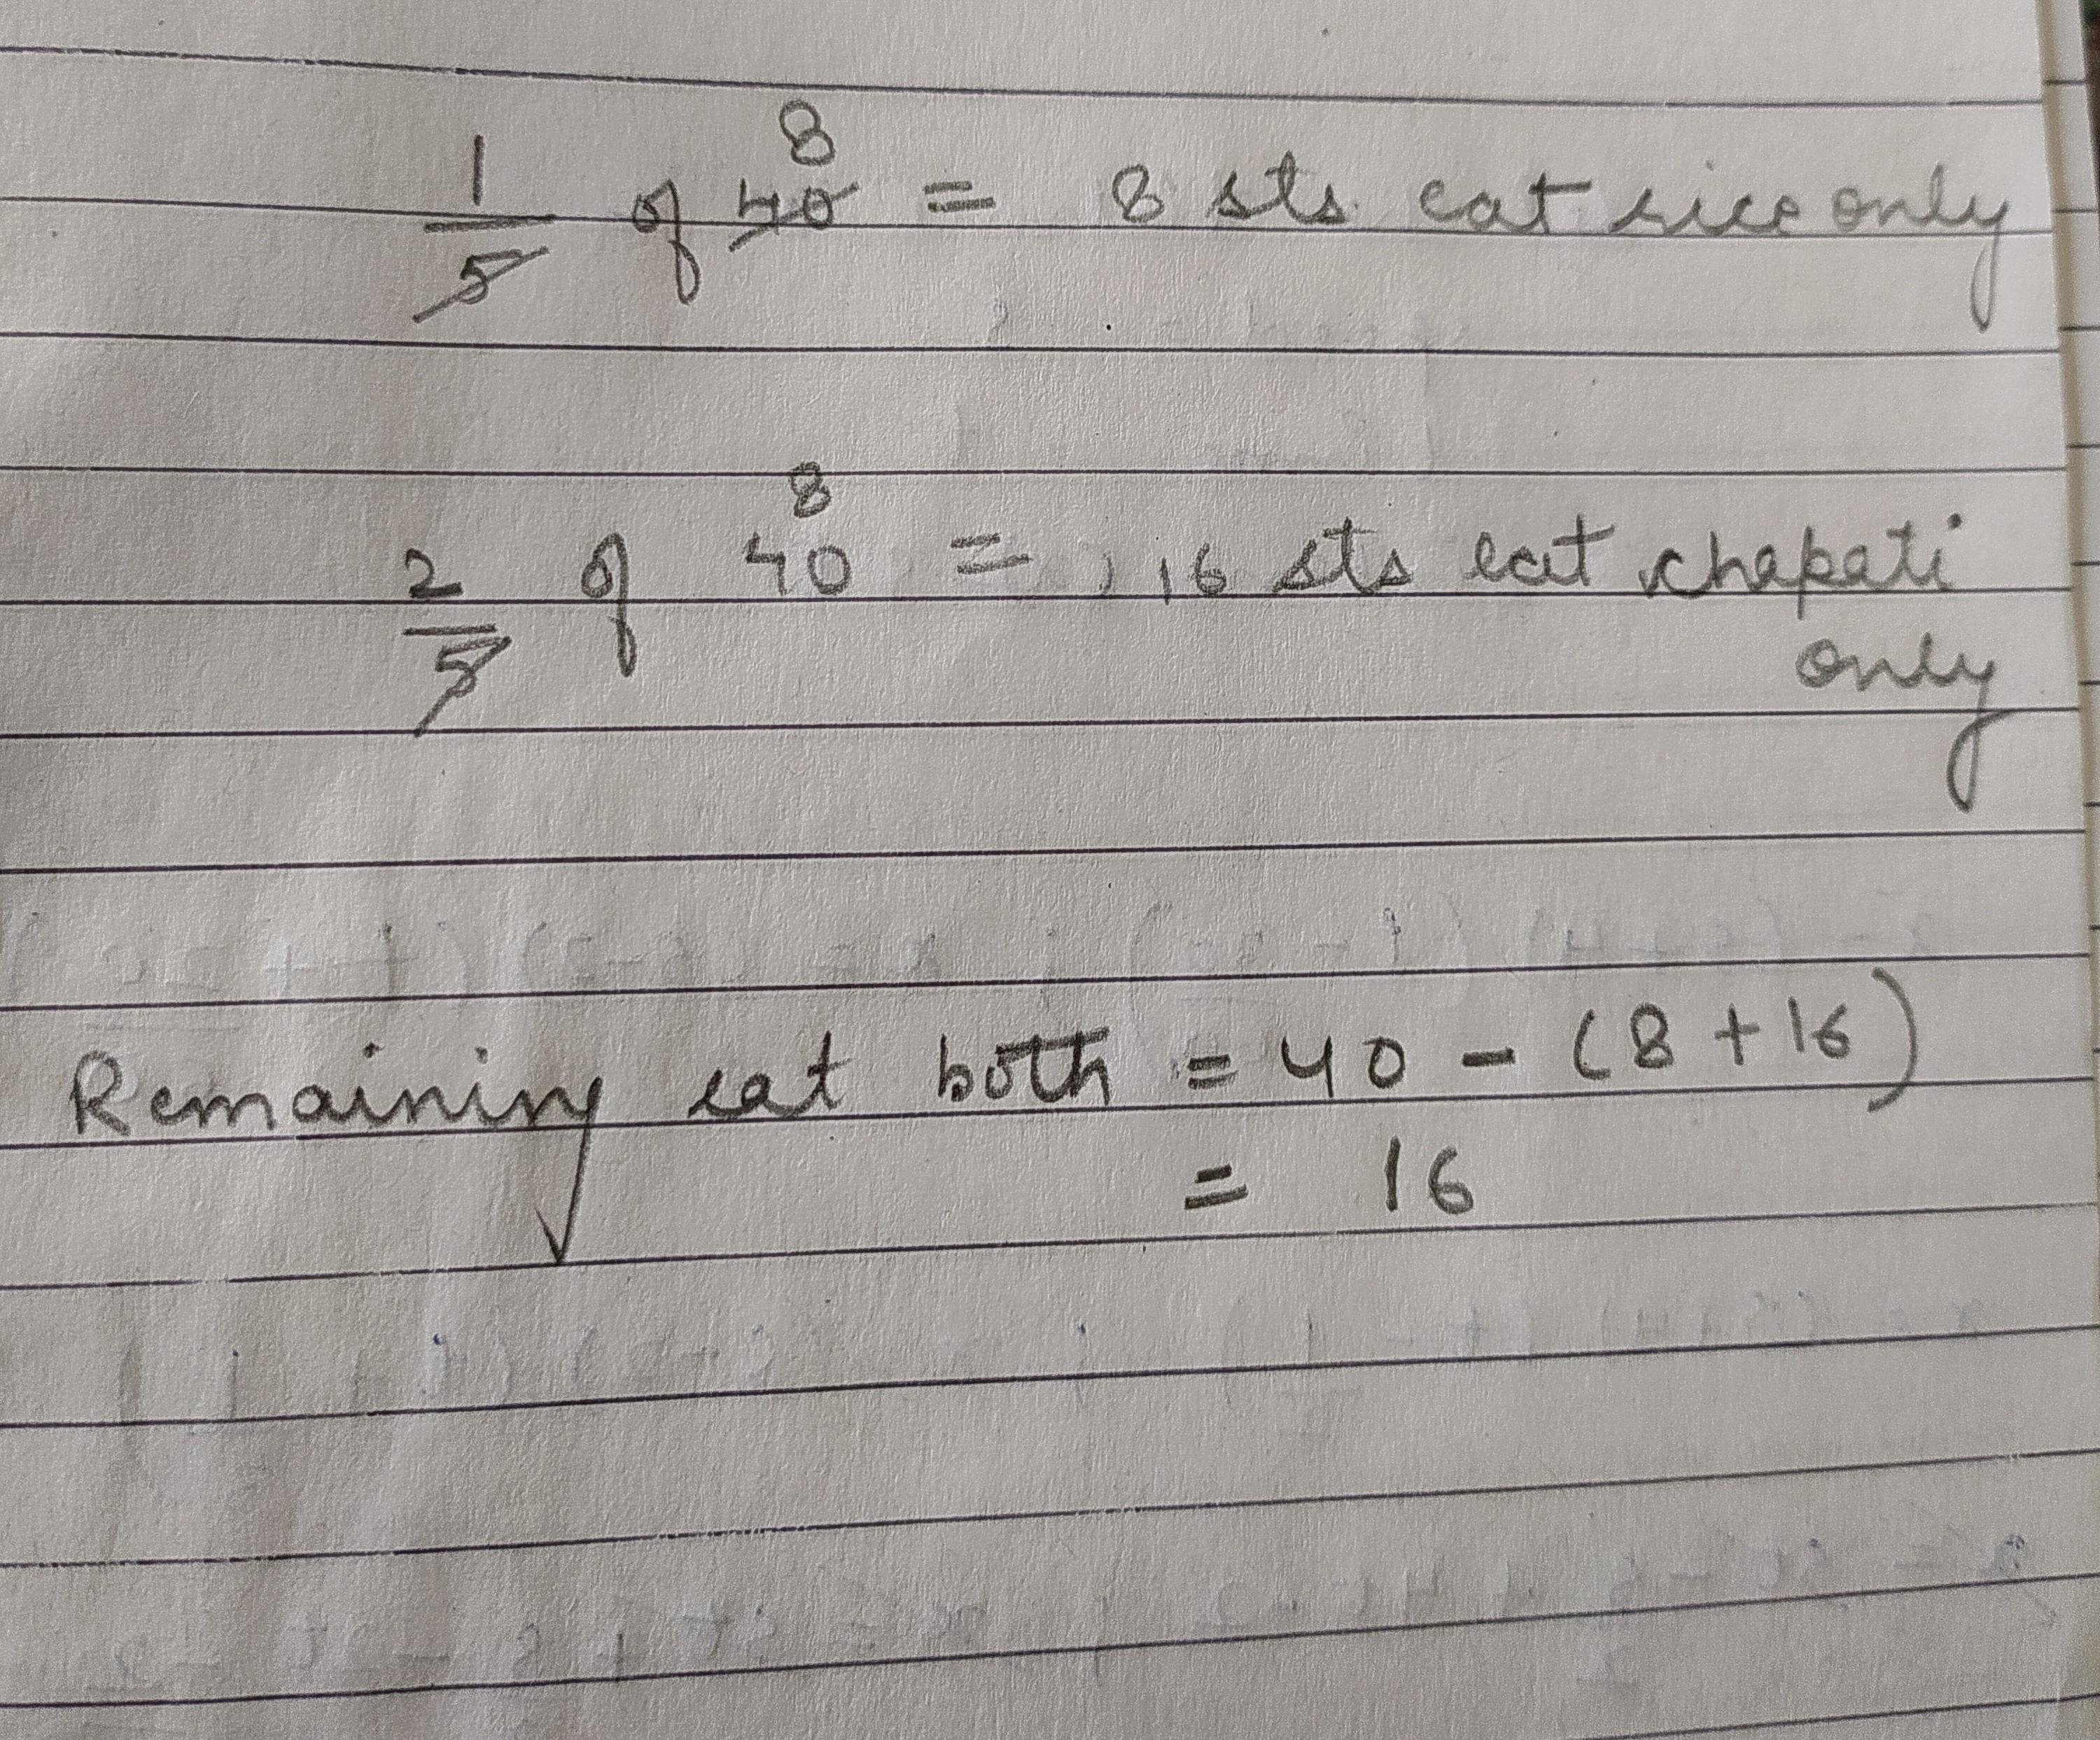 1/5 of 40 8 = 8 sts eat rice only
2/5 of 40 8 = 16 sts eat chapati
only
Remaining eat both = 40 - (8 + 16)
= 16